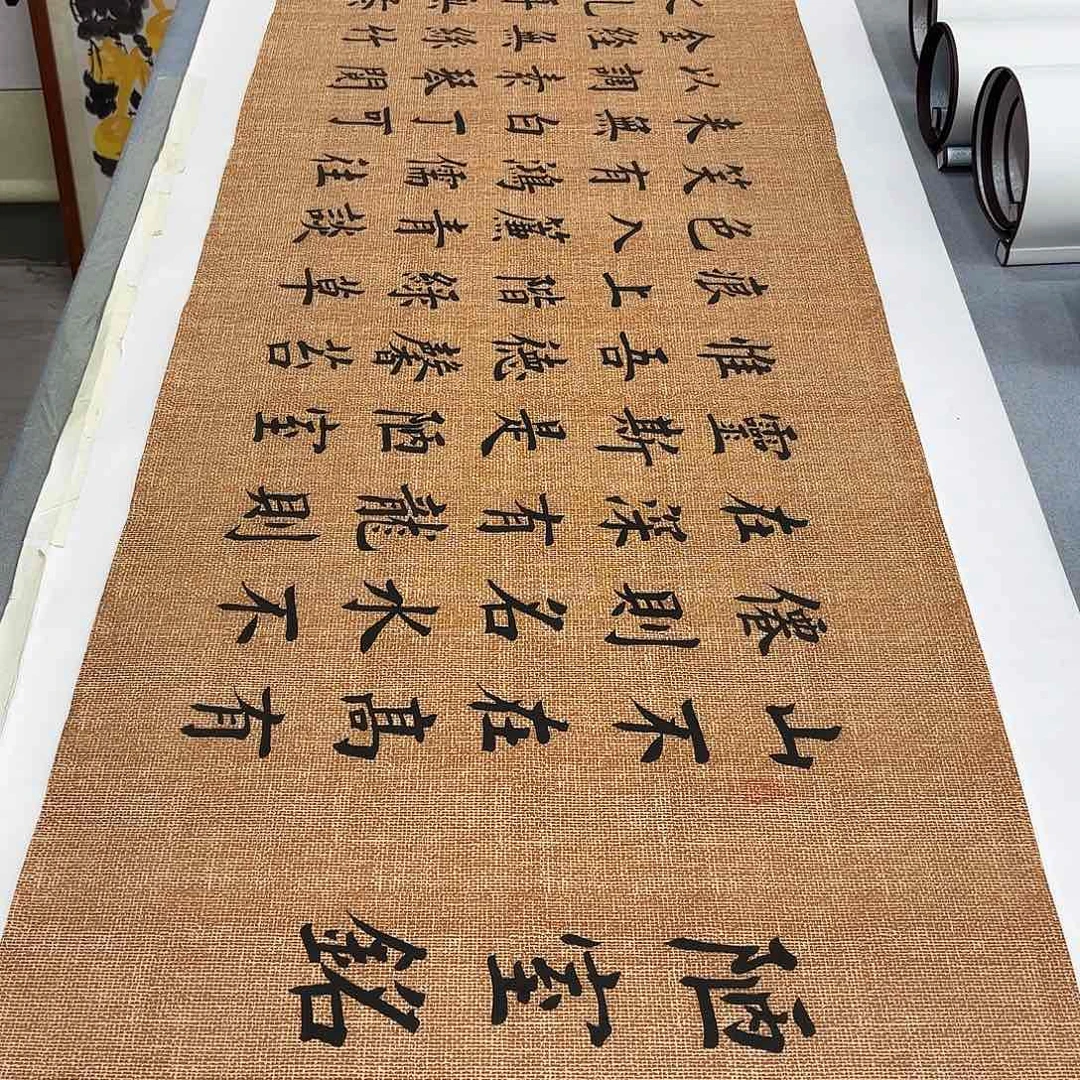 陋室銘
山不在髙有
僊則名水不
在深有龍則
靈斯是陋室
惟吾德馨苔
痕上階綠草
色入簾青談
笑有鴻儒往
来無白丁可
以調素琴閱
金經無絲竹